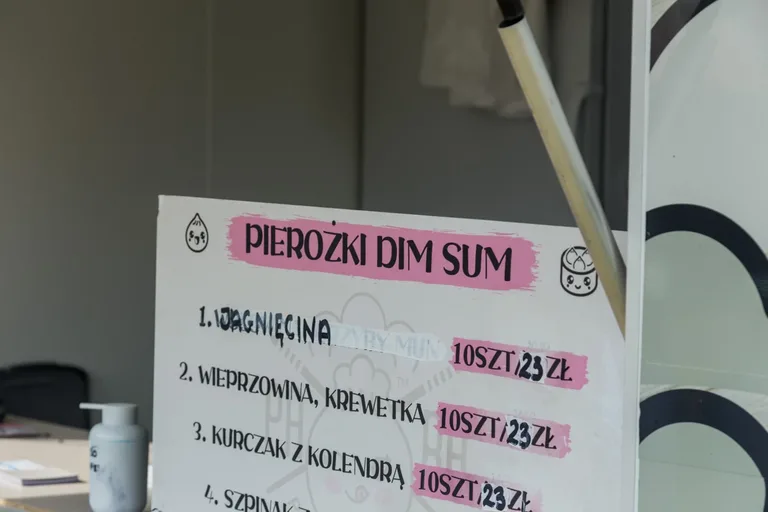 PIEROŻKI DIM SUM
1. JAGNIĘCINA 10SZT/23ZŁ
2. WIEPRZOWINA, KREWETKA 10SZT/23ZŁ
3. KURCZAK Z KOLENDRĄ 10SZT/23ZŁ
4. SZPINAK Z